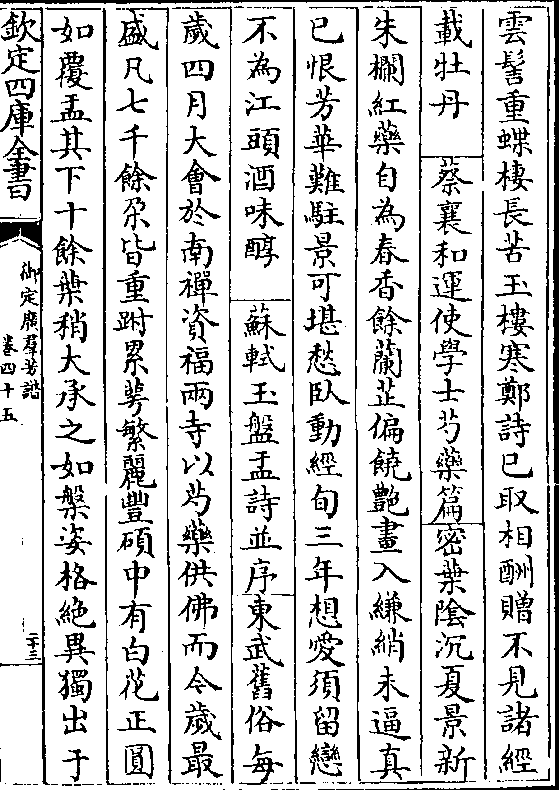 雲髻重蝶棲長苦玉樓寒鄭詩已取相酬贈不見諸經
載牡丹　蔡襄和運使學士芍藥篇密葉隂沉夏景新
朱欄紅藥自為春香餘蘭芷偏饒艷畫入縑綃未逼真
已恨芳華難駐景可堪愁臥動經旬三年想愛須留戀
不為江頭酒味醇　蘇軾玉盤盂詩並序東武舊俗每
歲四月大會於南禪資福兩寺以芍藥供佛而今歲最
盛凡七千餘朶皆重跗累萼繁麗豐碩中有白花正圓
如覆盂其下十餘葉稍大承之如槃姿格絶異獨出于
欽定四庫全書
御定廣羣芳譜
卷四十五
二十三